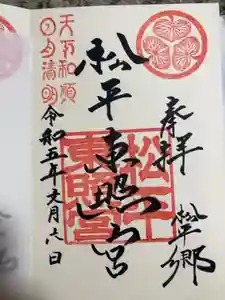 奉拝
松平郷
松平東照宮
松平東照宮
天下和順
日月清明
令和五年文月六日